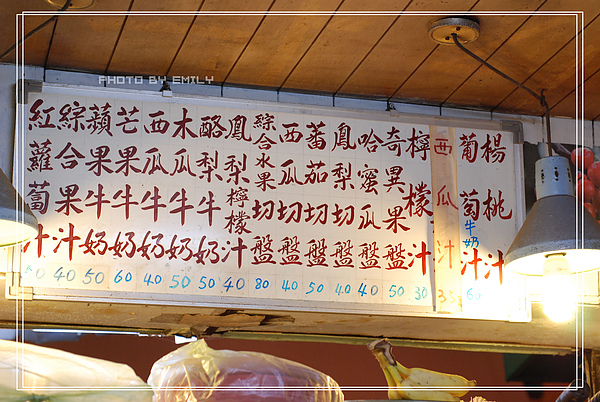 PHOTO BY EMILY
楊桃汁
葡萄牛奶汁 60
西瓜汁 35
檸檬汁 30
奇異果盤 50
哈蜜瓜盤 40
鳳梨切盤 40
蕃茄切盤 50
西瓜切盤 40
綜合水果切盤 80
鳳梨檸檬汁 40
酪梨牛奶 50
木瓜牛奶 50
西瓜牛奶 40
芒果牛奶 60
蘋果牛奶 50
綜合果汁 40
紅蘿蔔汁